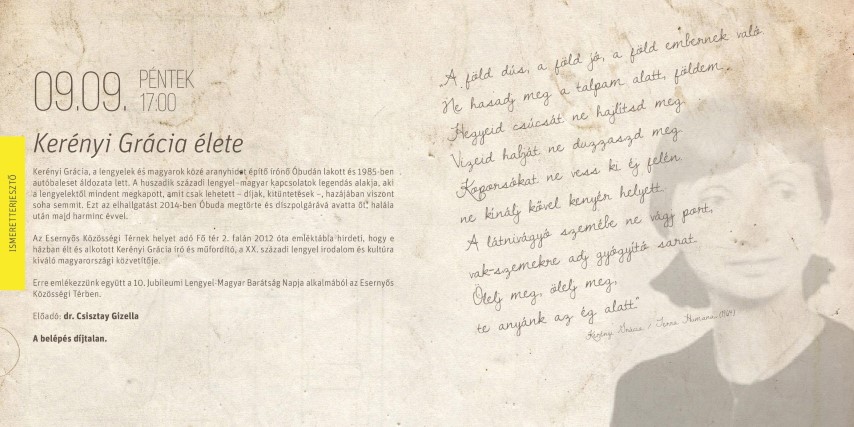 09.09. PÉNTEK
17:00
Kerényi Grácia élete
Kerényi Grácia, a lengyelek és magyarok közé aranyhidat építő írónő Óbudán lakott és 1985-ben
autóbaleset áldozata lett. A huszadik századi lengyel–magyar kapcsolatok legendás alakja, aki
a lengyelektől mindent megkapott, amit csak lehetett – díjak, kitüntetések –, hazájában viszont
soha semmit. Ezt az elhallgatást 2014-ben Óbuda megtörte és díszpolgárává avatta őt, halála
után majd harminc évvel.
Az Esernyős Közösségi Térnek helyet adó Fő tér 2. falán 2012 óta emléktábla hirdeti, hogy e
házban élt és alkotott Kerényi Grácia író és műfordító, a XX. századi lengyel irodalom és kultúra
kiváló magyarországi közvetítője.
Erre emlékezzünk együtt a 10. Jubileumi Lengyel-Magyar Barátság Napja alkalmából az Esernyős
Közösségi Térben.
Előadó: dr. Csisztay Gizella
A belépés díjtalan.
ISMERETTERJESZTŐ
„A föld dús, a föld jó, a föld embernek való.
Ne hasadj meg a talpam alatt, földem.
Hegyeid csúcsát ne hajlítsd meg
Vizeid habját ne duzzaszd meg
Koporsókat ne vess ki éj felén.
ne kínálj kővel kenyér helyett.
A látnivágyó szemébe ne vágy port,
vak-szemekre adj gyógyító sarat.
Ölelj meg, ölelj meg,
te anyánk az ég alatt."
Kerényi Grácia / Terra Humana